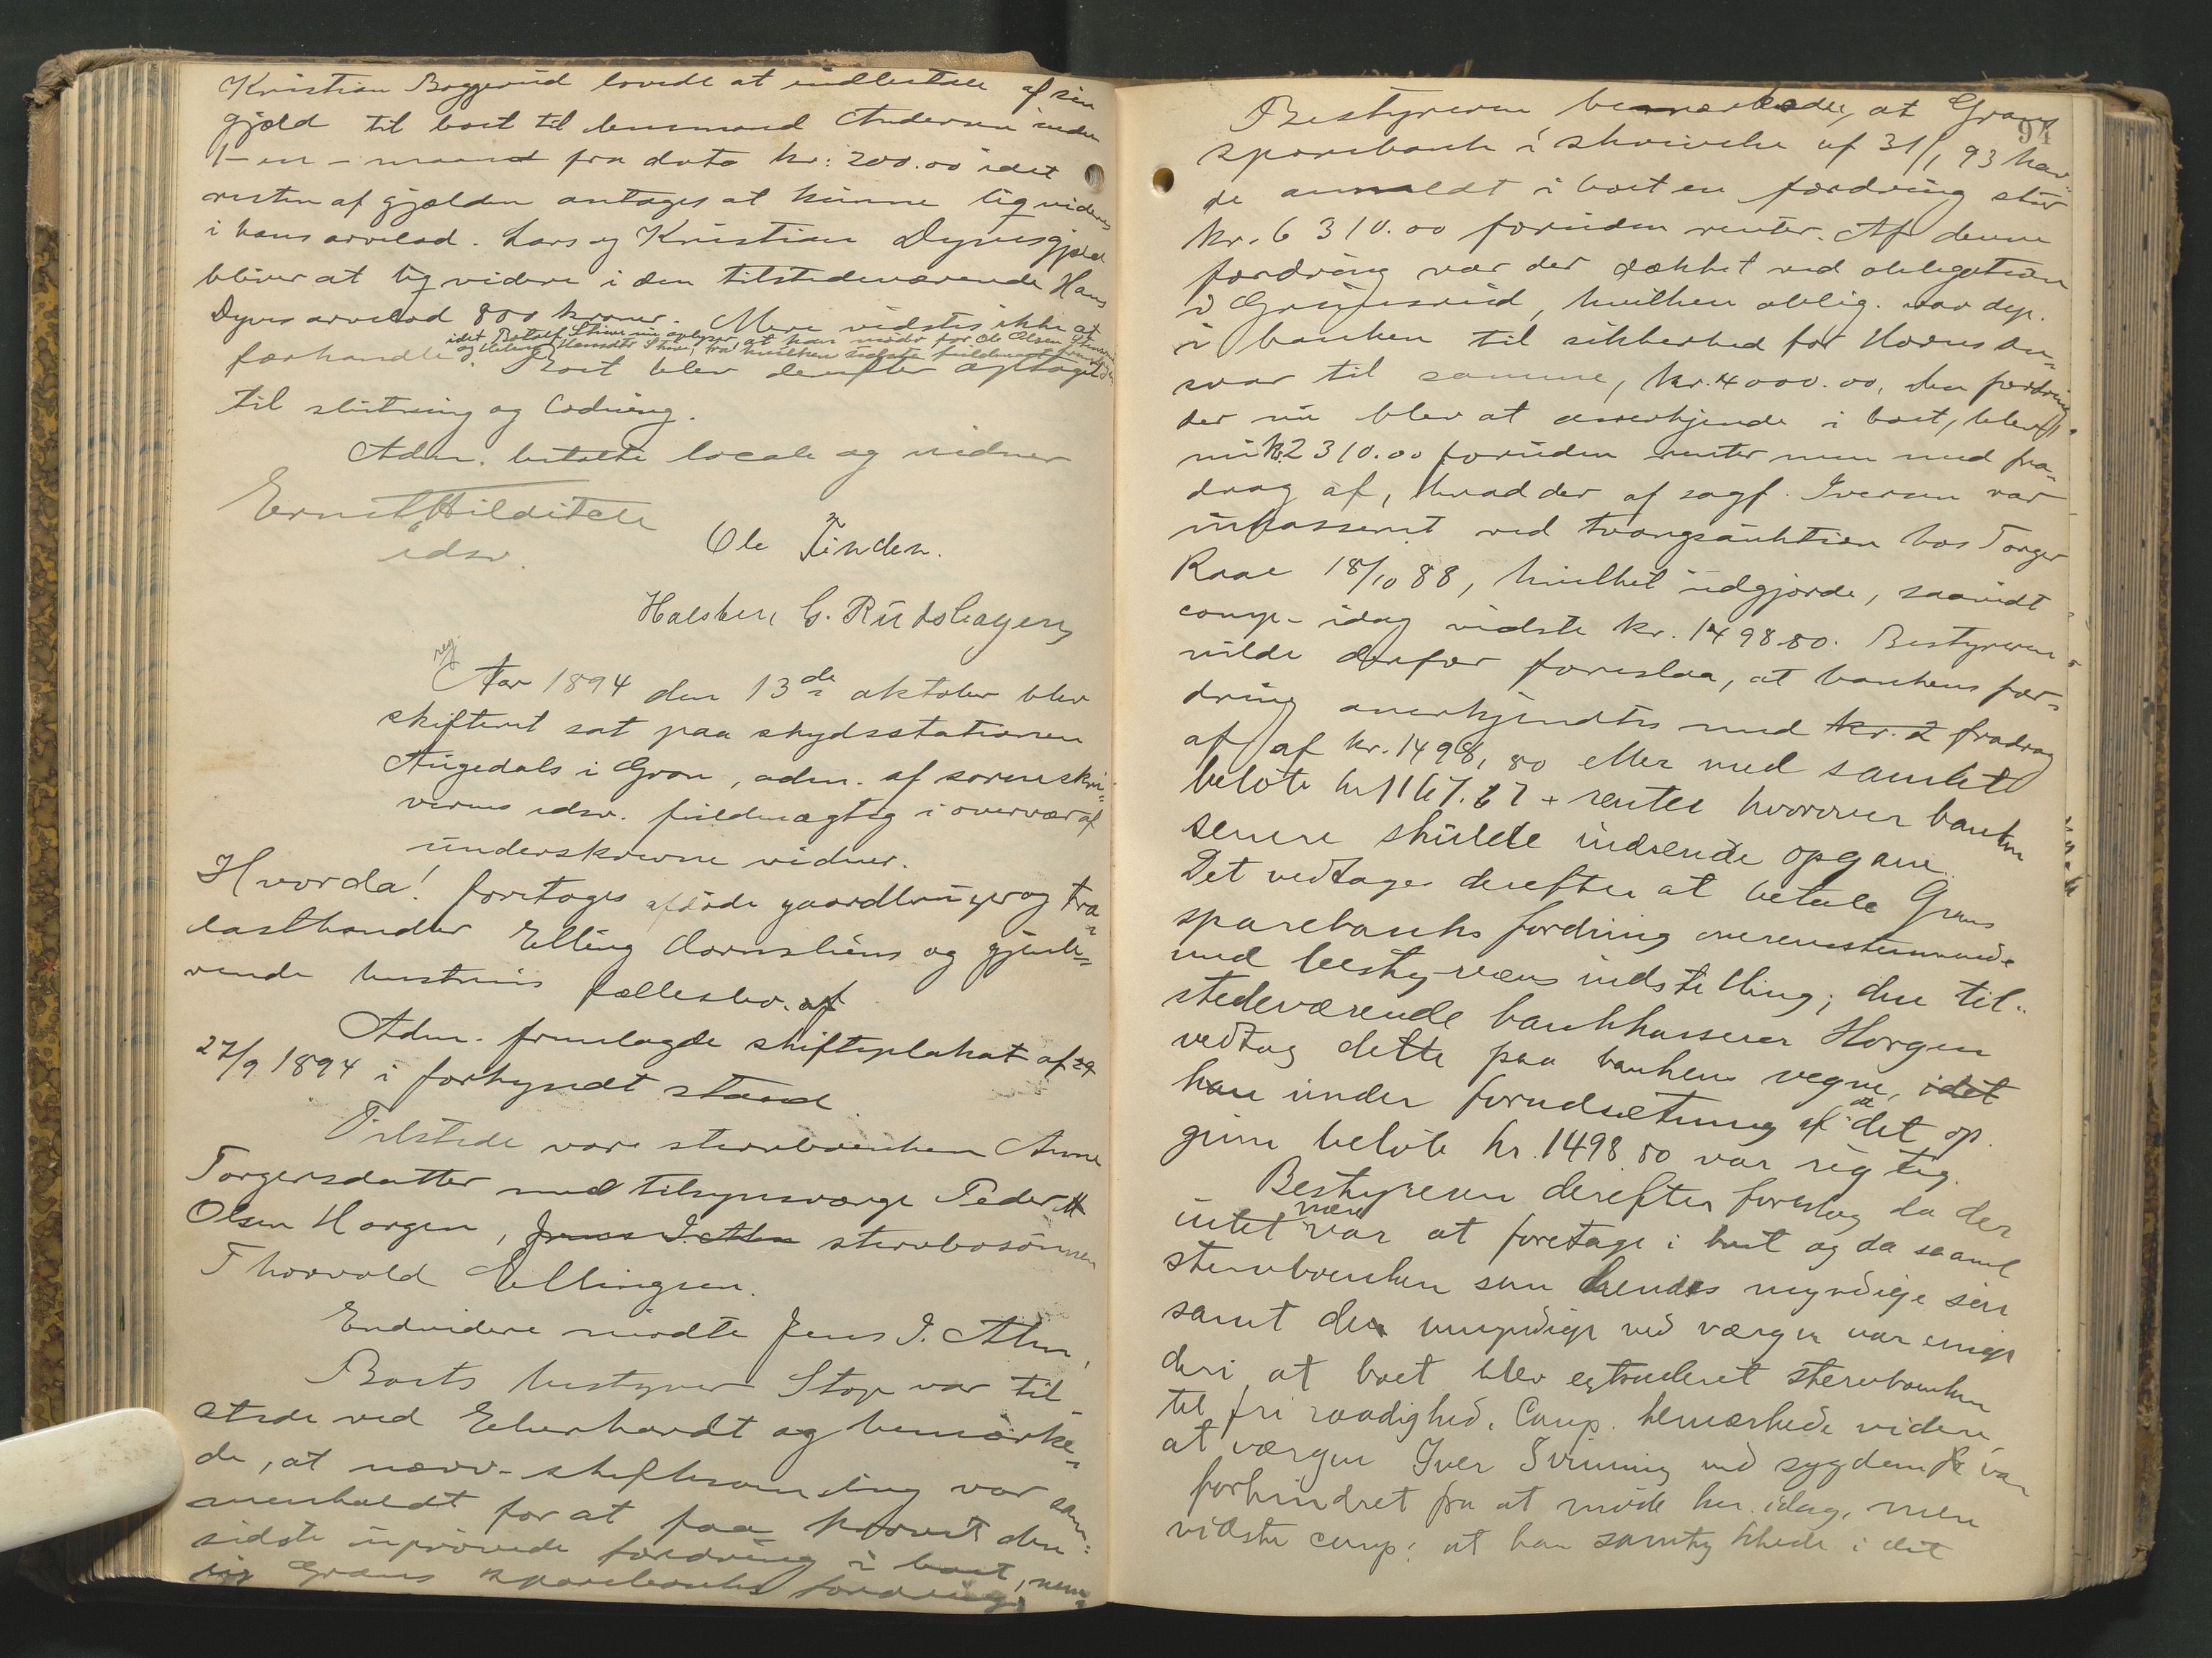 Kristian Boggerud lovede at indbetale af sin
gjæld til boet til lensmand Andersen inden
1 - en - maaned fra dato kr: 200.00 idet
resten af gjælden antages at kunne ligvideres
i hans arvelod. Lars og Kristian Dynes gjæld
bliver at ligvidere i den tilstedeværende Hans
Dynes arvelod 800 kroner. Mere vidstes ikke at
idet Botolf Stine nu oplyser, at han møder for Ole Olsen
og Hansdtr Stine, fra hvilken sidste fuldmagt
forhandle. Boet blev derefter optaget
til slutning og lodning.
Adm. betalte locale og vidner
Ernst Hilditch
edsv.
Ole Tinden.
Halsten G. Rudshagen
reg
Aar 1894 den 13de oktober blev
skifteret sat paa skydsstationen
Augedals i Gran, adm. af sorenskri-
verens edsv. fuldmægtig i overvær af
underskrevne vidner.
Hvorda! foretoges afdøde gaardbruger og tra-
lasthandler Elling Hornsliens og gjenle-
vende hustrus fællesbo. af
Adm. fremlagde skifteplakat af 29
27/9 1894 i forkyndt stand
Tilstede vare stervboenken Anne
Torgersdatter med tilsynsværge Peder M
Olsen Horgen, Jens J. Alm stervbosønnen
Thorvald Ellingsen.
Endvidere mødte Jens J. Alm,
Boets bestyrer Stop var til-
stede ved Eberhardt og bemærke-
de, at nærv. skiftesamling var sam-
menholdt for at faa prøvet den
sidste uprøvede fordring i boet, nem-
lig Grans sparebanks fordring.
94
Bestyreren bemærkede, at Grans
sparebank i skrivelse af 31/1 93 hav-
de anmeldt i boet en fordring stor
kr. 6310.00 foruden renter. Af denne
fordring var der dækket ved obligation
i Grinisrud, hvilken oblig. var dep.
i banken til sikkerhed for Horns an-
svar til samme, kr. 4000.00, den fordring
der nu blev at anerkjende i boet, blev
nu kr 2310.00 foruden renter men med fra-
drag af, hvad der af sagf. Iversen var
indkasseret ved tvangsauktion hos Torger
Raae 18/10 88, hvilket udgjorde, saavidt
comp. idag vidste kr. 1498.80. Bestyreren
vilde derfor foreslaa, at bankens for-
dring anerkjendtes med kr. 2 fradrag
af af kr. 1498,80 eller med samlet
beløb kr 1167.67 + renter hvorover banken
senere skulde indsende opgave.
Det vedtoges derefter at betale Grans
sparebanks fordring overensstemmende
med bestyrerens indstilling; den til-
stedeværende bankkasserer Horgen
vedtog dette paa bankens vegne, idet
han under forudsætning af at det op-
givne beløb kr. 1498.80 var rigtig.
Bestyreren derefter foreslog da der
intet mere var at foretage i boet og da saavel
stervboenken som hendes myndige søn
samt den umyndige ved værgen var enige
deri at boet blev extraderet stervboenken
til fri raadighed. Comp. bemærkede videre,
at værgen Iver Svinning ved sygdom var
forhindret fra at møde her idag, men
vidste comp: at han samtykkede i det